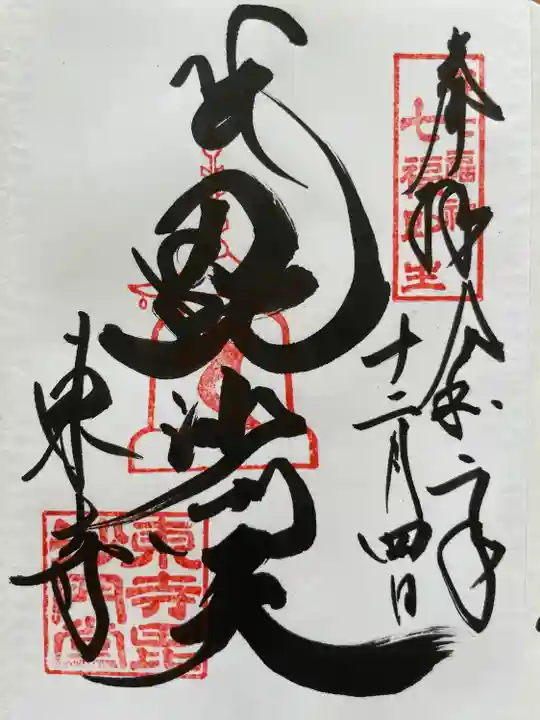 奉拝
令和
十二月四日
七福即生
毘沙門天
東寺
東寺毘
沙門堂